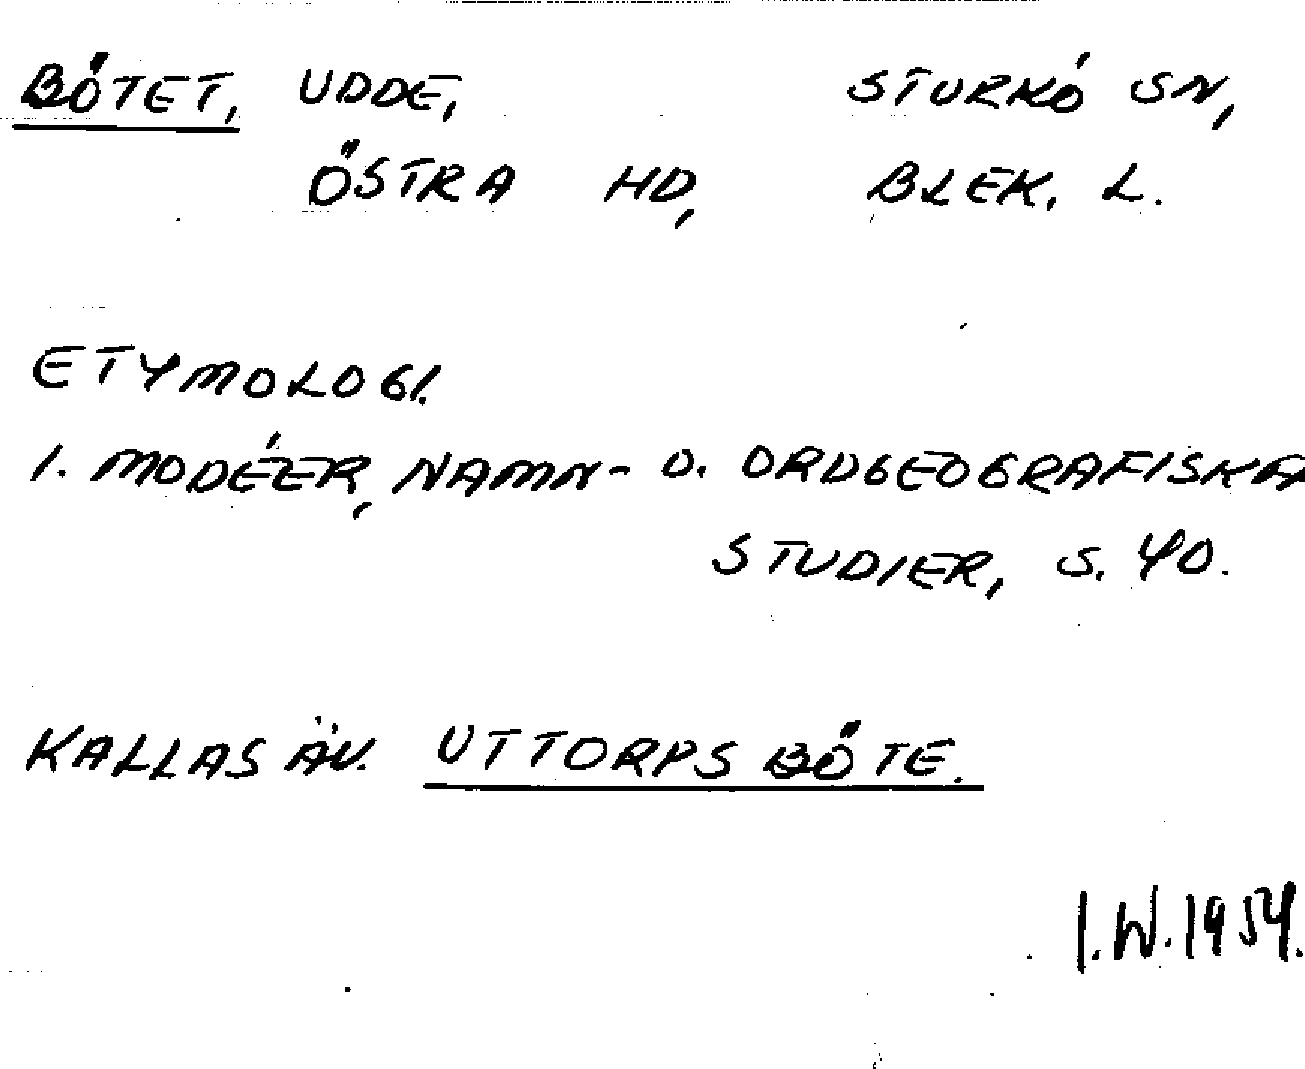 BÖTET, UDDE, STURKÖ SN,
ÖSTRA HD, BLEK. L.
ETYMOLOGI.
1. MODÉER, NAMN- O. ORDGEOGRAFISKA
STUDIER, S. 40.
KALLAS ÄV. UTTORPS BÖTE.
I.W. 1954.